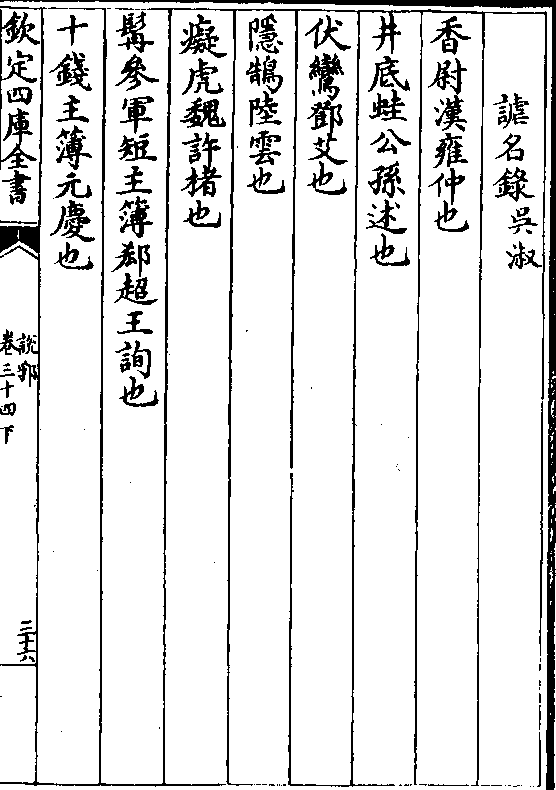 謔名錄吳淑
香尉漢雍仲也
井底蛙公孫述也
伏鸞鄧艾也
隱鵠陸雲也
癡虎魏許楮也
髯參軍短主簿郄超王詢也
十錢主簿元慶也
欽定四庫全書
說郛
卷三十四下
三十六